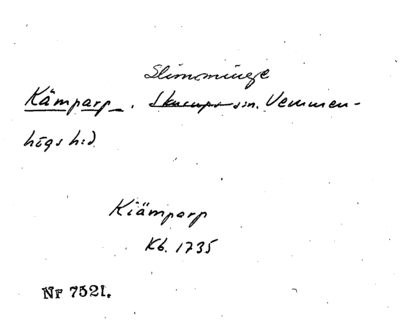 Slimminge
Kämparp. Skurups sn. Vemmen-
högs h:d
Kiämparp
Kb. 1735
Nr 7521.